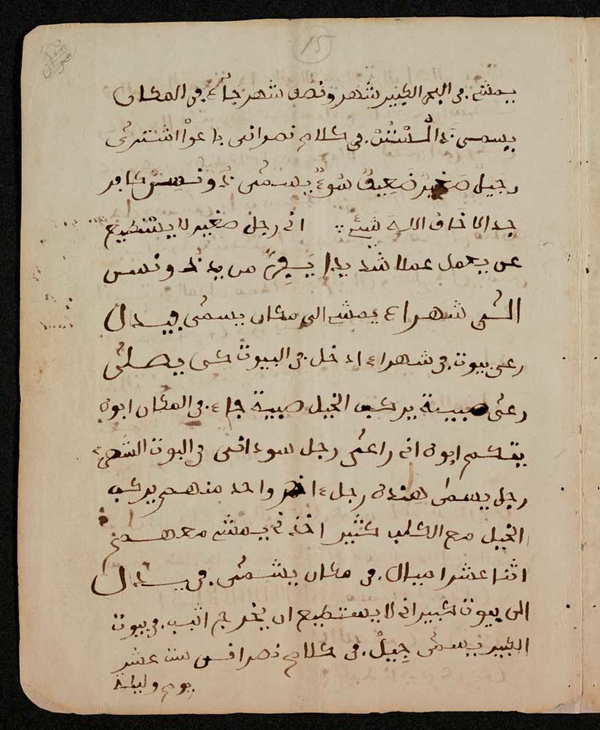 15
يمشي في البحر الكبير شهر ونصف شهر جاء في المكان
يسمى في كلام نصراني باعوا اشترى
رجيل صغير ضعيف سوء يسمى كافر
جدا لا خاف الله شيء اني رجل صغير لا يستطيع
عن يعمل عملا شديدا يفر من يد جونسن
شهراء يمشي الى مكان يسمى فيدل
رءى بيوت في شهراء ادخل في البيوت كى يصلى
رءى صبية يركب الخيل صبية جاء في المكان ابوه
يتكلم ابوه انه راءى رجل سوداني في البوت
رجل يسمى هنده رجل ءاخر واحد منهم يركب
الخيل مع الكلب كثير اخذني يمشي معهم
اثنا عشر اميال في مكان يسمى فيدل
الى بيوت كبير اني لا يستطيع ان يخرج اثب في بيوت
الكبير يسمى جيل في كلام نصراني ست عشر
يوم وليلة